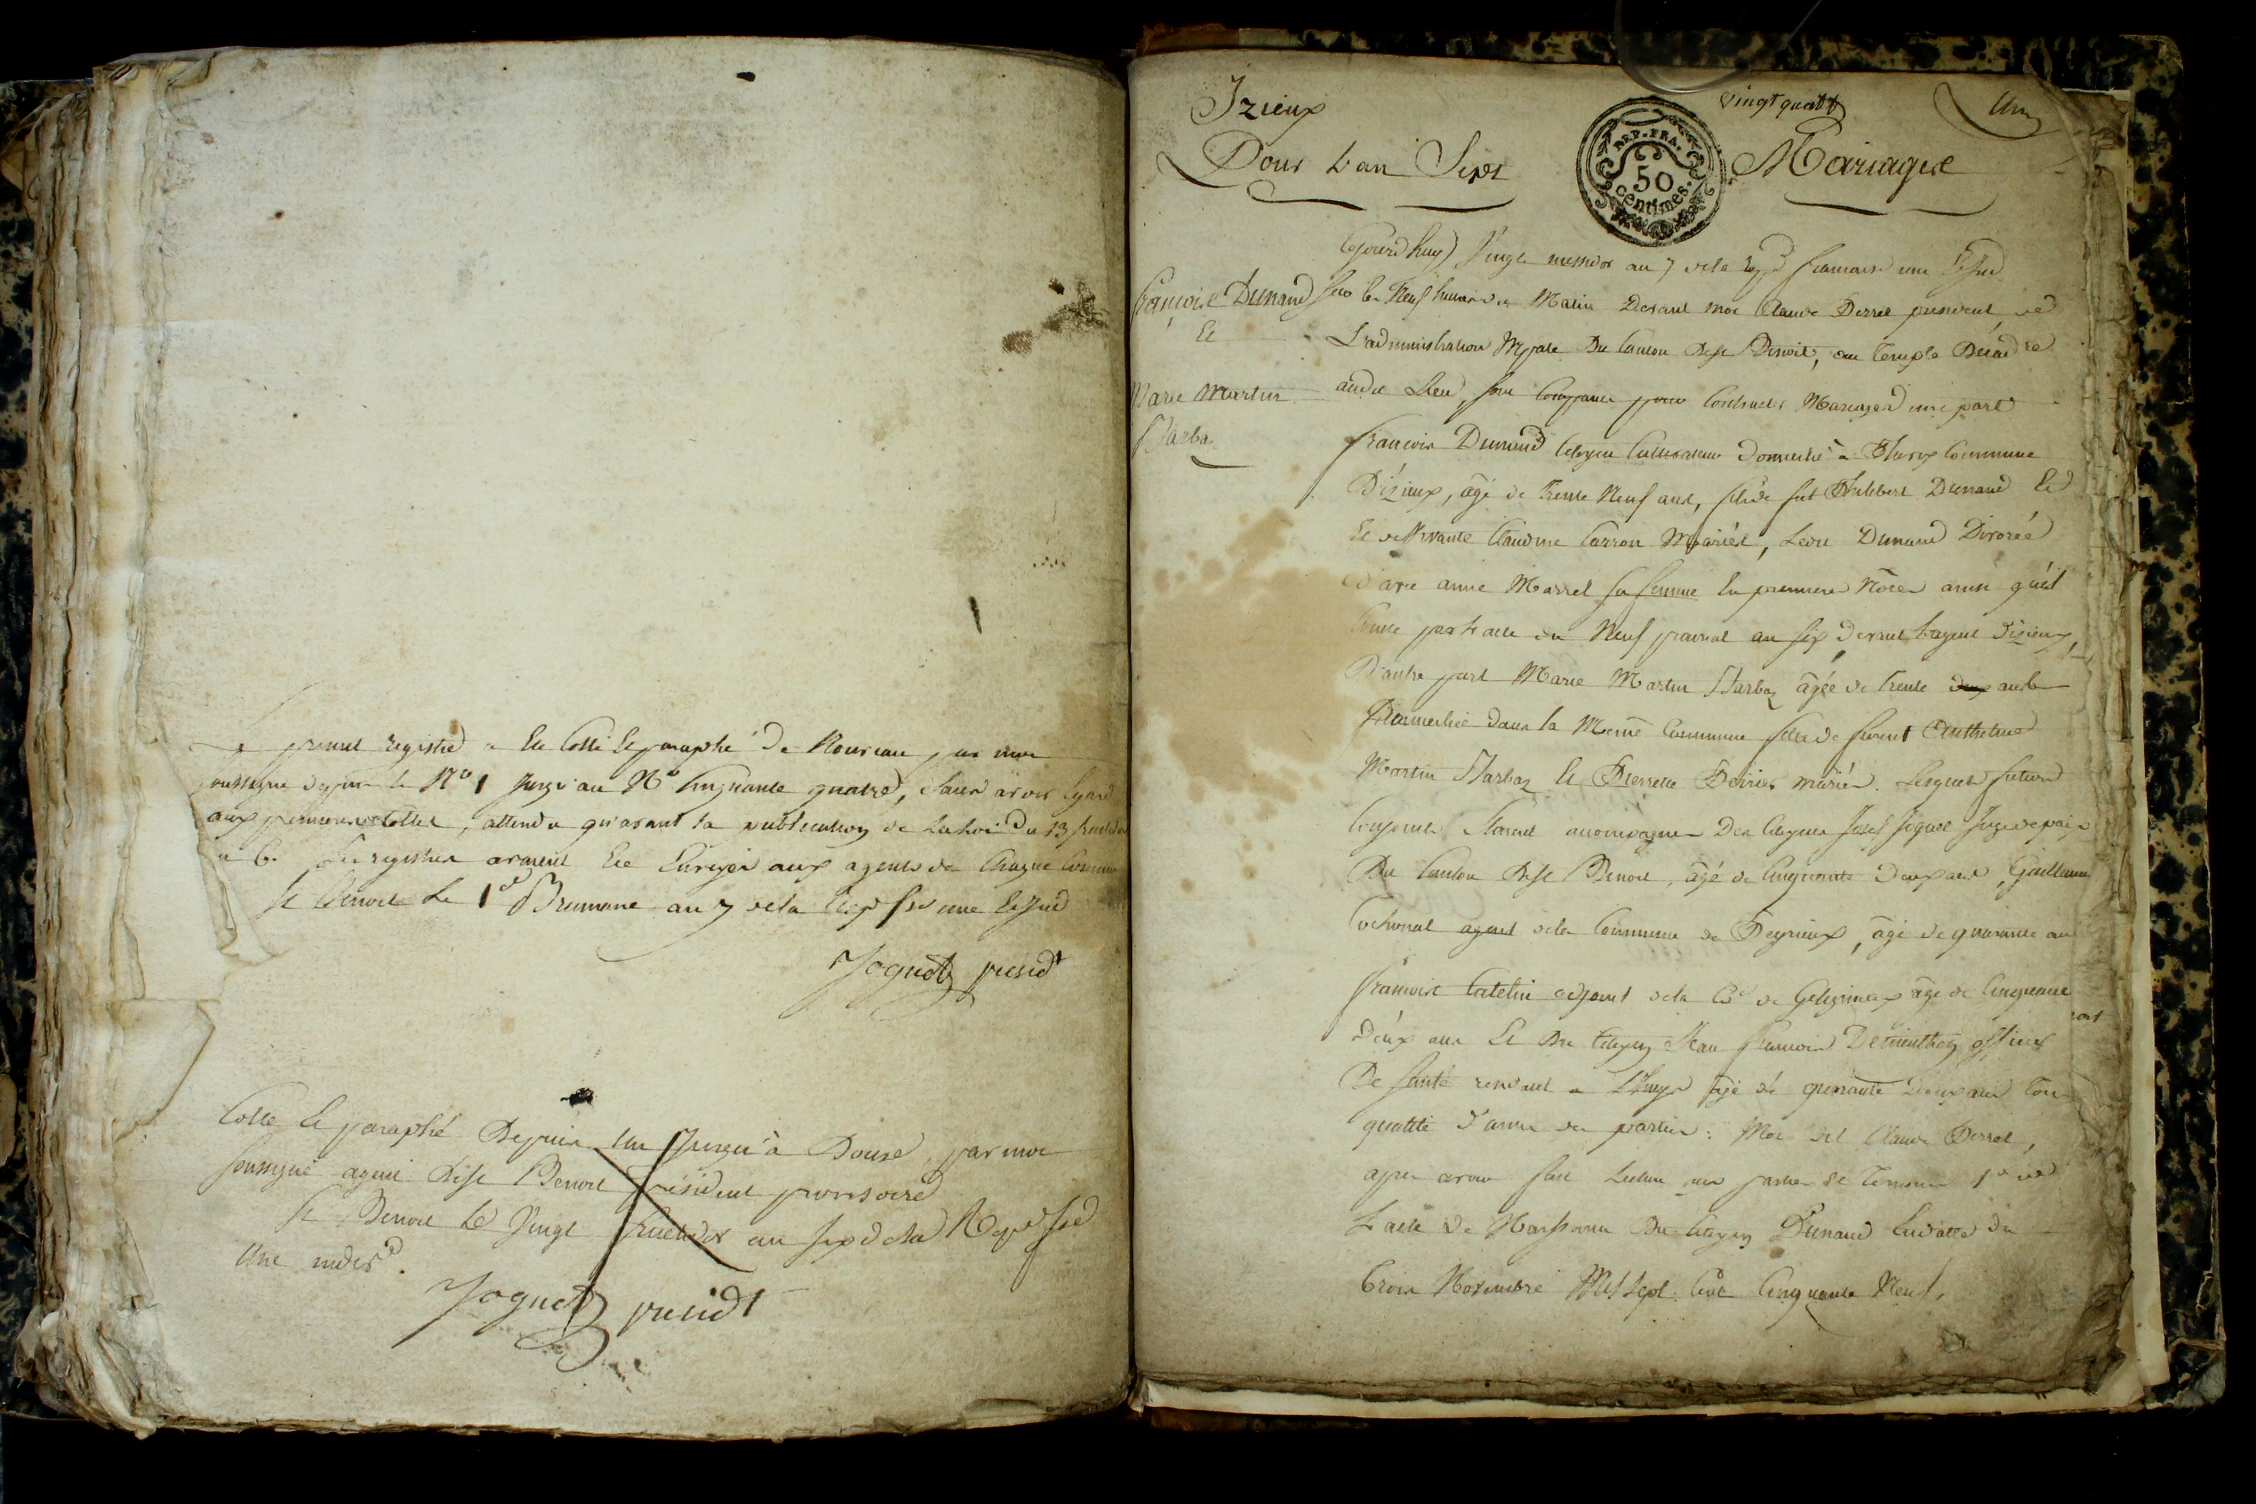 Le present registre a Eté Cotté Et paraphé De Nouveau par moi
soussigné depuis le N° 1 jusqu'au N° Cinquante quatre, sans avoir Egard
aux premieres Cottes, attendu qu'avant la publication de la Loi Du 13 fructidor
an 6. les registres avaient Eté Envoyés aux agents de Chaque Commune
St Benoit Le 1er Brumaire an 7 de la Rep. fse une Et Ind
Joguet presidt
Cotté Et paraphé Depuis Un Jusqu'à Douse, par moi
soussigné agent De St Benoit président provisoire
St Benoit Le Vingt fructidor an six de la Rep. fse
Une indiv.
Joguet presidt
Izieux
vingt quatre
Un
Pour L'an Sept
REP. FRA.
50
centimes.
Mariages
Cejourd'huy Vingt messidor an 7 de la Rep. francaise une Et Ind
François Dunand
sur les Neuf heures du Matin Devant moi Claude Perret president de
Et
L'administration Mpale Du Canton De St Benoit, au Temple Décadre
Marie Martin
audit Lieu, sont Comparus pour Contracter Mariage d'une part
Barbaz
francois Dunand Citoyen Cultivateur Domicilié à Commune
D'izieux, âgé de trente Neuf ans, fils de fut Philibert Dunand Et
Et de Vivante Claudine Carron Mariés, Ledit Dunand Divorcé
D'avec anne Marrel sa femme En premiere Nôces ainsi qu'il
Conste par L'acte du Neuf prairial an six devant L'agent D'izieux,
D'autre part Marie Martin Barbaz âgée de trente ans
Domiciliée dans la Meme Commune fille de furent Anthelme
Martin Barbaz Et Pierrette Perrier mariés. Lesquels futurs
Conjoints Etaient accompagnés Des Citoyens Josef Joguet Juge de paix
Du Canton De St Benoit, âgé de Cinquante Deux ans, Guillaume
Cochonat agent de la Commune de Peyrieux, âgé de quarante ans
francois Catelin adjoint de la Cne de Gelignieux âgé de Cinquante
Deux ans Et Du Citoyen Jean francois officier
De santé residant a L'huys âgé de quarante Deux ans Tous
qualité d'amis des parties: Moi dit Claude Perret,
apres avoir fait Lecture aux parties Et Temoins 1° de
L'acte de Naissance Du Citoyen Dunand En datte du
trois Novembre Mil Sept Cent Cinquante Neuf,